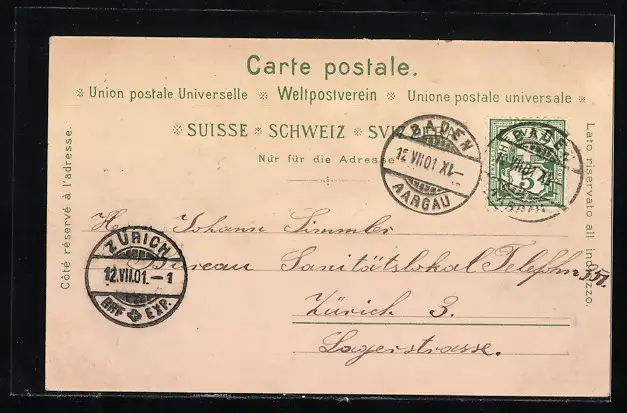 Carte postale.
Union postale Universelle * Weltpostverein * Unione postale universale *
* SUISSE * SCHWEIZ * SVIZZERA
Nur für die Adresse
Côté réservé à l'adresse.
Lato riservato all indirizzo.
BADEN
12 VII 01 XI–
AARGAU
BADEN
VII 01 XI
5
ZÜRICH
12.VII.01.–1
BRF EXP.
Johann Simmler
Bureau Sanitätslokal Telephn 350.
Zürich 3.
Lagerstrasse.